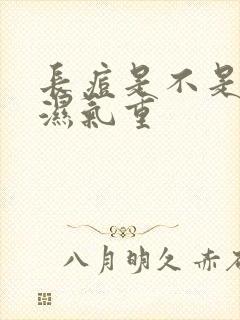 長痘是不是
濕氣重
八月明久赤石